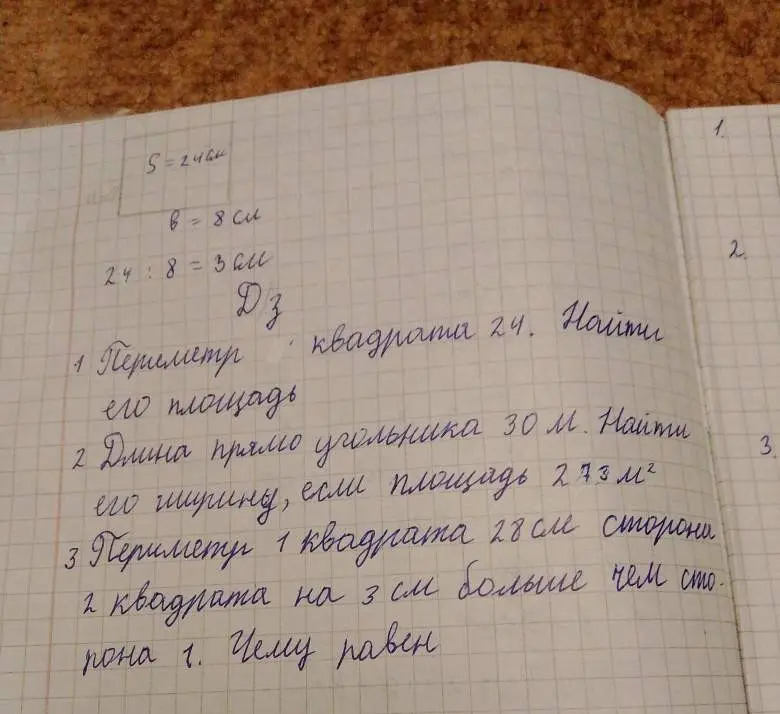 S = 24 см
в = 8 см
24 : 8 = 3 см
Дз
1 Периметр квадрата 24. Найти
его площадь
2 Длина прямо угольника 30 м. Найти
его ширину, если площадь 273 м²
3 Периметр 1 квадрата 28 см сторона
2 квадрата на 3 см больше чем сто-
рона 1. Чему равен
1.
2.
3.